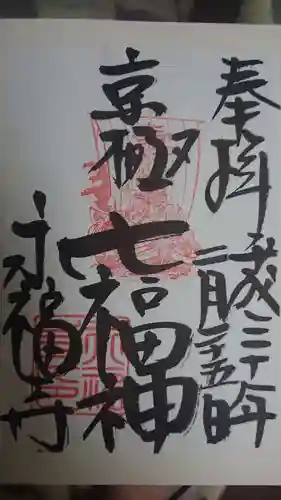 奉拝
平成三十年
二月二十五日
京極
七福神
永福寺